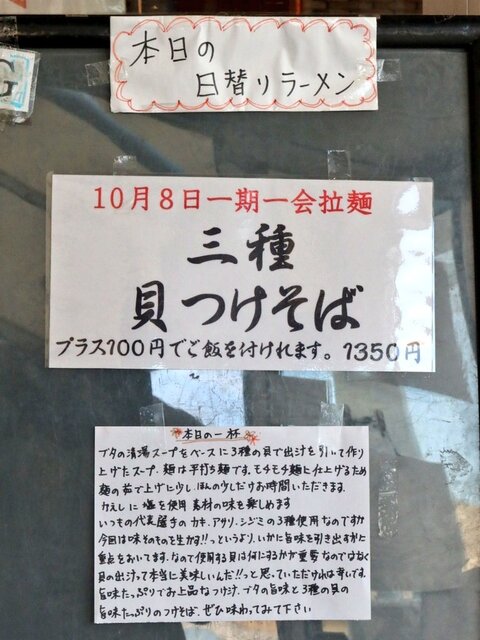 G
本日の
日替りラーメン
10月8日一期一会拉麺
三種
貝つけそば
プラス100円でご飯を付けれます。1350円
本日の一杯
ブタの清湯スープをベースに3種の貝で出汁を引いて作り
上げたスープ。麺は平打ち麺です。モチモチ麺に仕上げるため
麺の茹で上げに少し、ほんの少しだけお時間いただきます。
かえしに塩を使用 素材の味を楽しめます
いつもの代表届きの カキ、アサリ、シジミの3種使用なのですが
今回は味そのものを生かす!!っというより、いかに旨味を引き出すかに
重点をおいてます。なので使用する貝は何にするかが重要なのではなく
貝の出汁って本当に美味しいんだ!!っと思っていただければ幸いです。
旨味たっぷりでお上品なつけ汁。ブタの旨味と3種の貝の
旨味たっぷりのつけそば。ぜひ味わってみて下さい